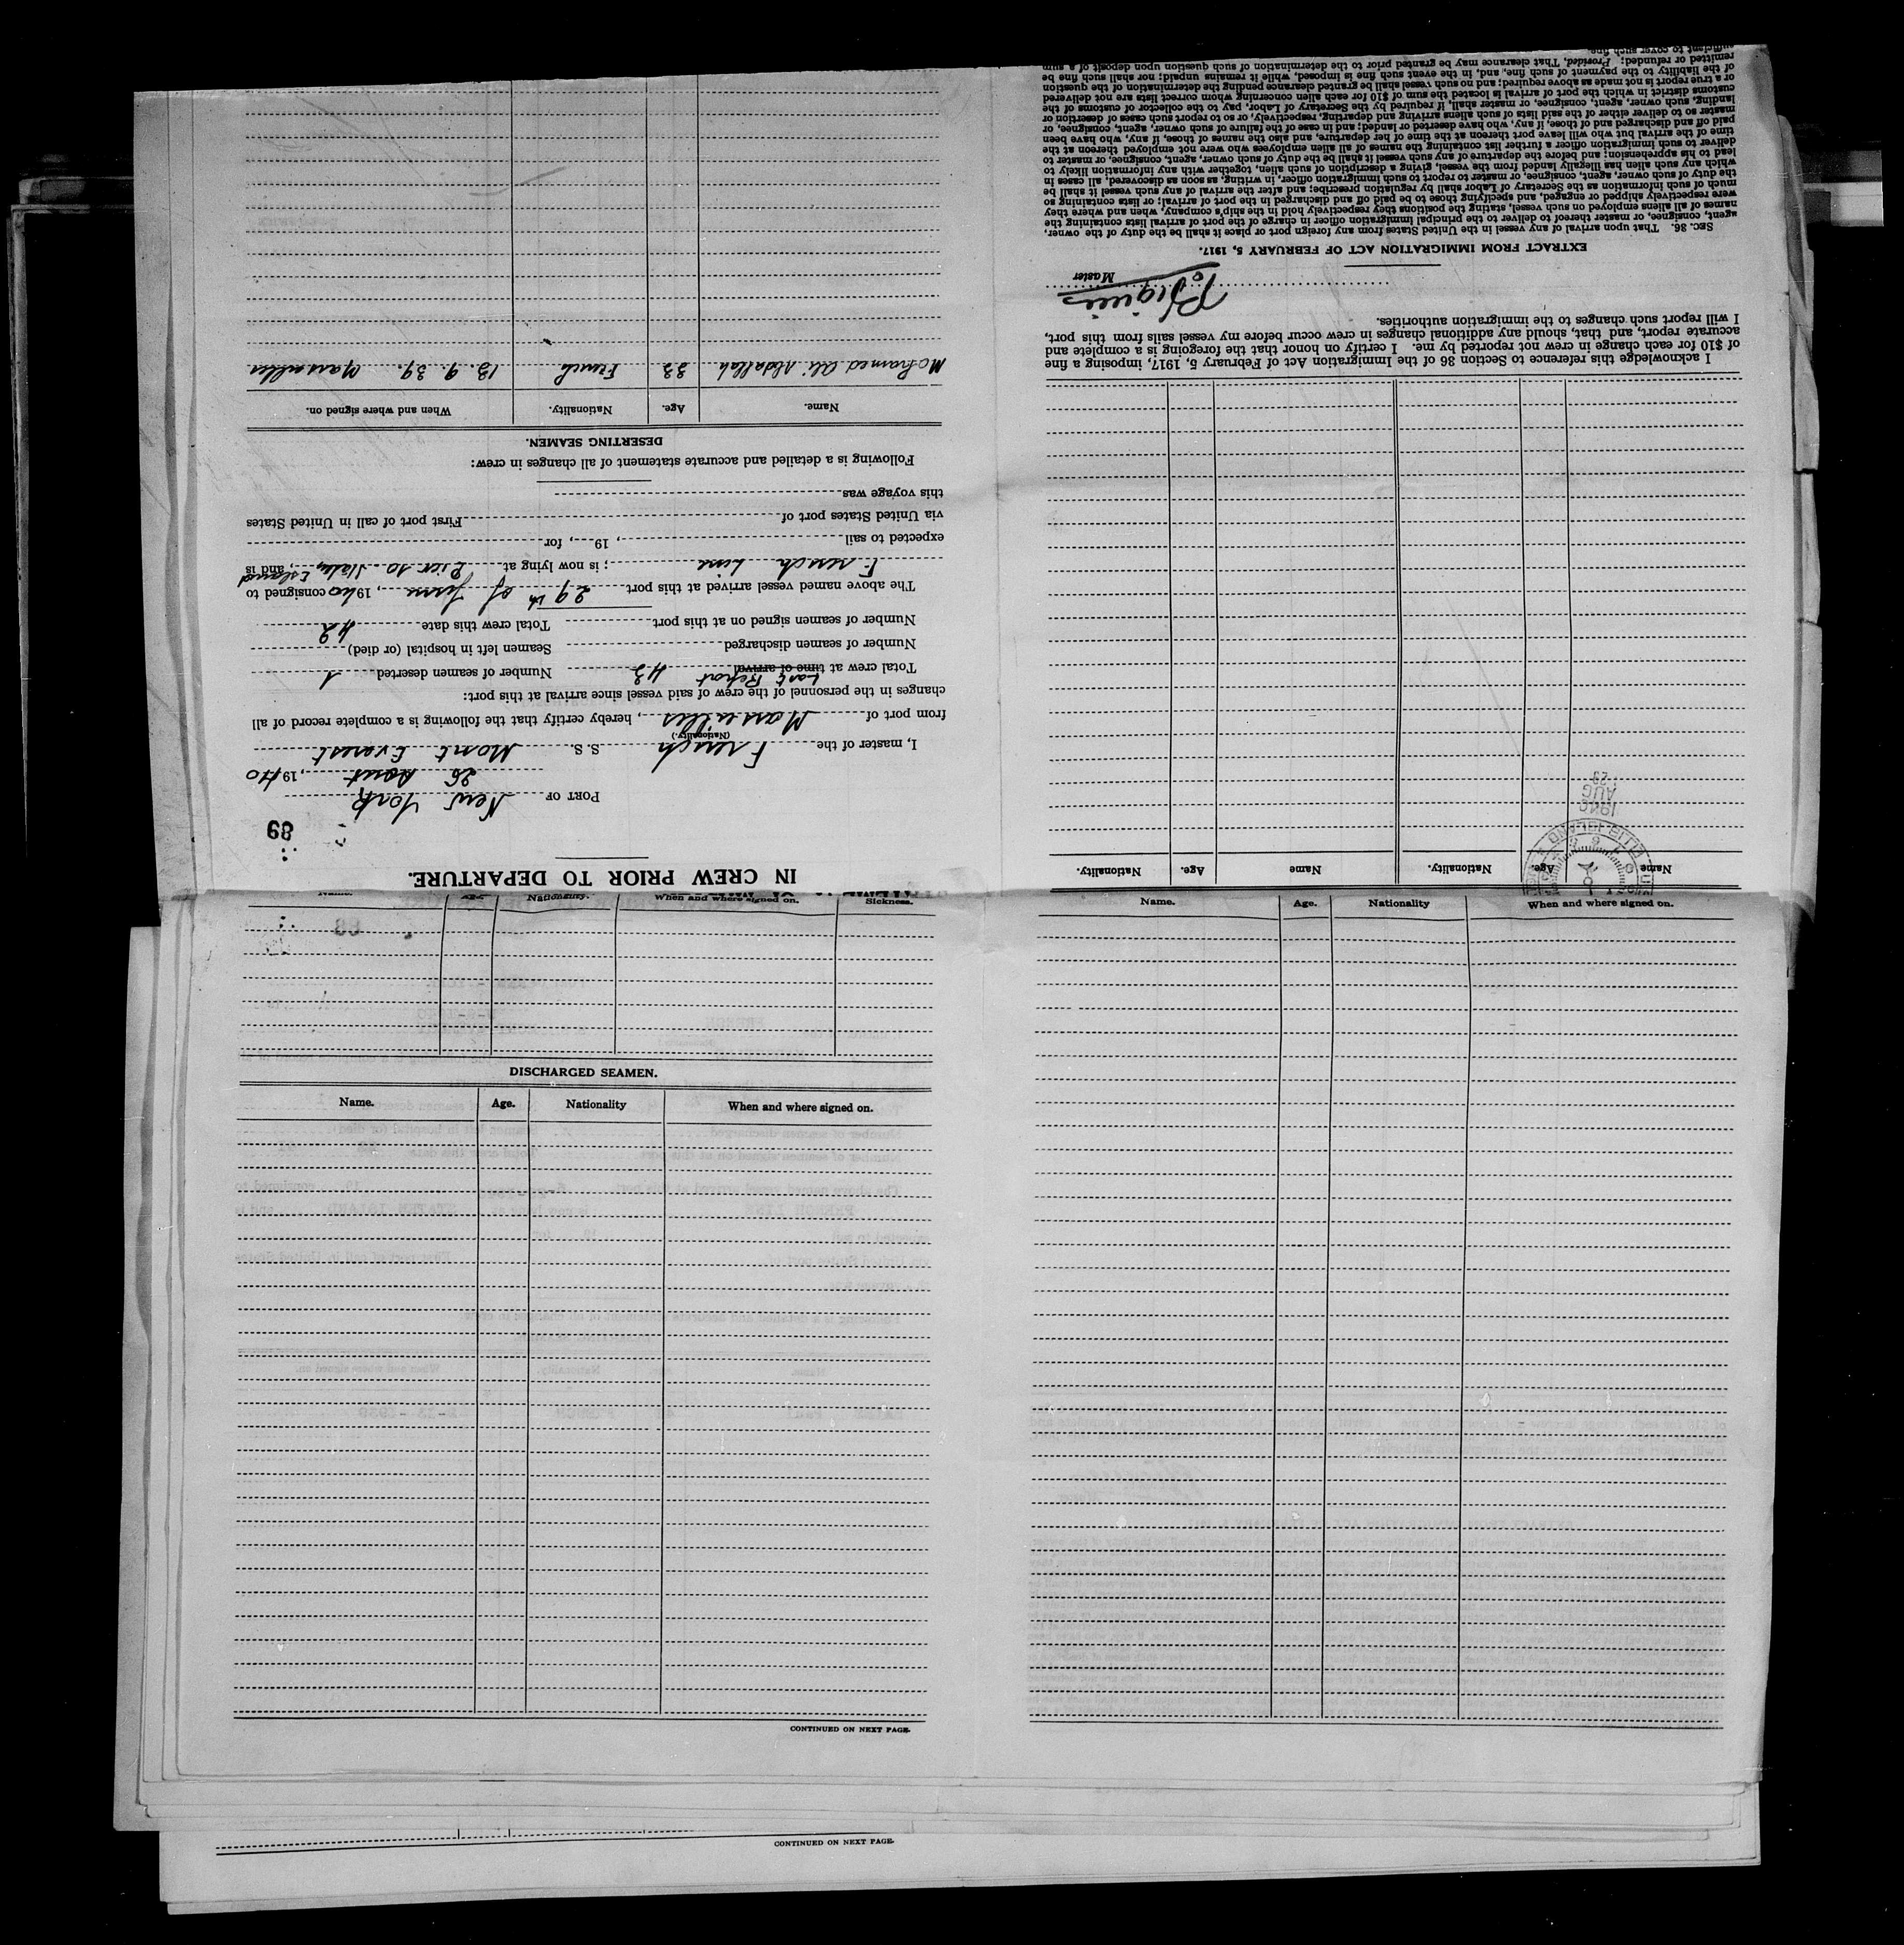 IN CREW PRIOR TO DEPARTURE.
89
PORT OF New York
26 Aout, 1940
I, master of the French S. S. Mont Everest
(Nationality.)
from port of Marseilles, hereby certify that the following is a complete record of all
changes in the personnel of the crew of said vessel since arrival at this port:
Last Report
Total crew at time of arrival 43 Number of seamen deserted 1
Number of seamen discharged Seamen left in hospital (or died)
Number of seamen signed on at this port Total crew this date 42
The above named vessel arrived at this port 29th of June, 1940 consigned to
French Line; is now lying at Pier 10 Staten Island, and is
expected to sail, 19, for
via United States port of First port of call in United States
this voyage was
Following is a detailed and accurate statement of all changes in crew:
DESERTING SEAMEN.
Name. Age. Nationality. When and where signed on.
Mohamed Ali Abdallah 33 French 13. 9. 39. Marseilles
Name Age. Nationality. Name Age. Nationality.
ELLIS ISLAND
1940
AUG
29
I acknowledge this reference to Section 36 of the Immigration Act of February 5, 1917, imposing a fine
of $10 for each change in crew not reported by me. I certify on honor that the foregoing is a complete and
accurate report, and that, should any additional changes in crew occur before my vessel sails from this port,
I will report such changes to the immigration authorities.
Master
EXTRACT FROM IMMIGRATION ACT OF FEBRUARY 5, 1917.
SEC. 36. That upon arrival of any vessel in the United States from any foreign port or place it shall be the duty of the owner,
agent, consignee, or master thereof to deliver to the principal immigration officer in charge of the port of arrival lists containing the
names of all aliens employed on such vessel, stating the positions they respectively hold in the ship's company, when and where they
were respectively shipped or engaged, and specifying those to be paid off and discharged in the port of arrival; or lists containing so
much of such information as the Secretary of Labor shall by regulation prescribe; and after the arrival of any such vessel it shall be
the duty of such owner, agent, consignee, or master to report to such immigration officer, in writing, as soon as discovered, all cases in
which any such alien has illegally landed from the vessel, giving a description of such alien, together with any information likely to
lead to his apprehension; and before the departure of any such vessel it shall be the duty of such owner, agent, consignee, or master to
deliver to such immigration officer a further list containing the names of all alien employees who were not employed thereon at the
time of the arrival but who will leave port thereon at the time of her departure, and also the names of those, if any, who have been
paid off and discharged and of those, if any, who have deserted or landed; and in case of the failure of such owner, agent, consignee, or
master so to deliver either of the said lists of such aliens arriving and departing, respectively, or so to report such cases of desertion or
landing, such owner, agent, consignee, or master shall, if required by the Secretary of Labor, pay to the collector of customs of the
customs district in which the port of arrival is located the sum of $10 for each alien concerning whom correct lists are not delivered
or a true report is not made as above required; and no such vessel shall be granted clearance pending the determination of the question
of the liability to the payment of such fine, and, in the event such fine is imposed, while it remains unpaid; nor shall such fine be
remitted or refunded: Provided, That clearance may be granted prior to the determination of such question upon deposit of a sum
sufficient to cover such fine.
Name. Age. Nationality. When and where signed on. Sickness.
DISCHARGED SEAMEN.
Name. Age. Nationality When and where signed on.
CONTINUED ON NEXT PAGE.
Name. Age. Nationality When and where signed on.
CONTINUED ON NEXT PAGE.